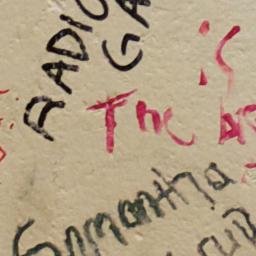 RADIO
GA
is
The
Samantha